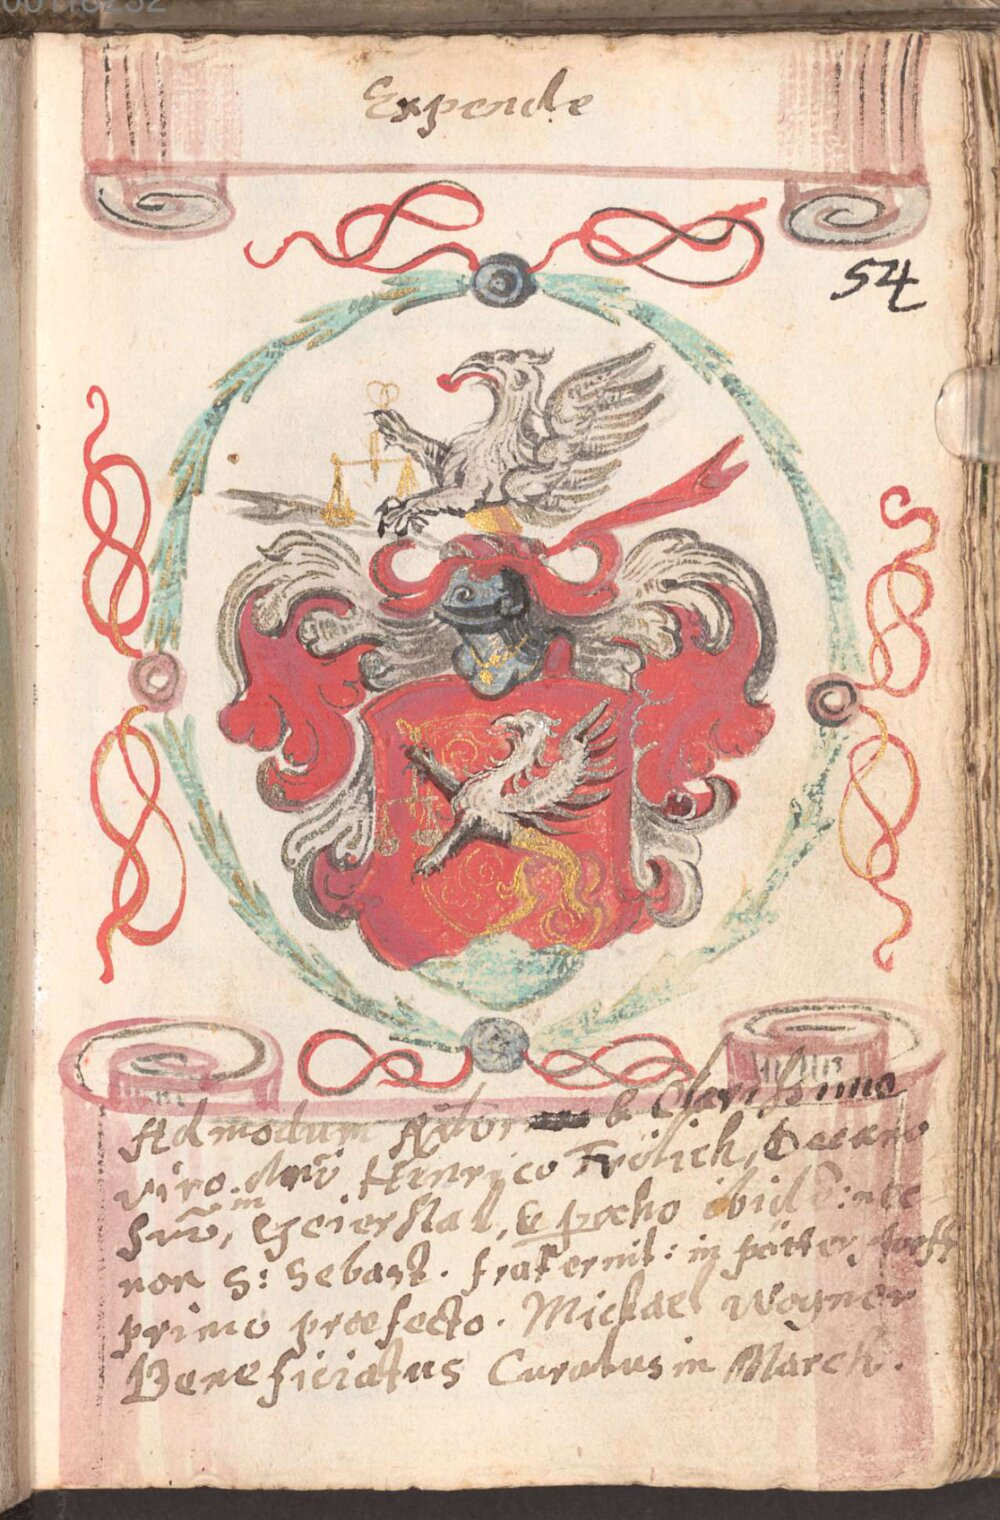 00118252
Expende
54
Admodum & Clarissimo
viro dño Henrico Frölich, Decano
in
Geierstal, & parocho ibidē: nec
non S: Sebast. fraternit: in
primo præfecto. Michael Wagner
Beneficiatus Curatus in March.